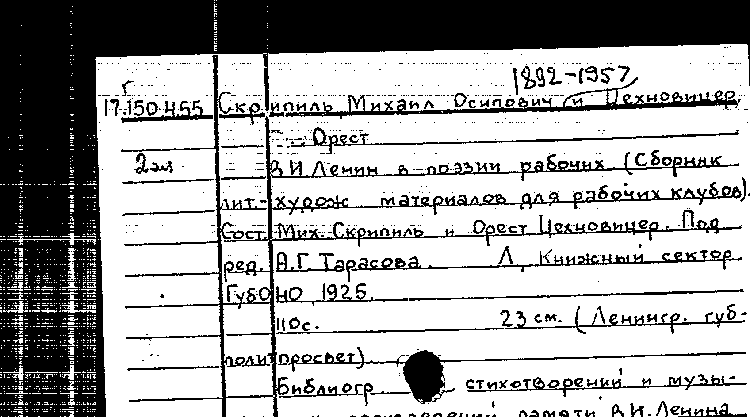 1892-1957
17.150.4.55 Скрипиль, Михаил Осипович и Цехновицер,
Орест
2 экз В.И. Ленин в поэзии рабочих (Сборник
лит.-худож материалов для рабочих клубов).
Сост. Мих. Скрипиль и Орест Цехновицер. Под
ред. А.Г. Тарасова. Л, Книжный сектор
ГубОНО, 1925.
110с. 23 см. (Ленингр. губ-
политпросвет)
Библиогр стихотворений и музы-
произведений памяти В.И. Ленина